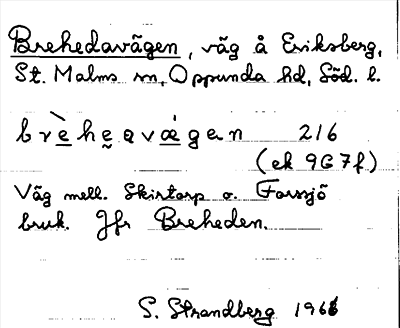 Brehedavägen, väg å Eriksberg,
St. Malms sn, Oppunda hd, Söd. l.
brèheavǽgen 216
(ek 9G7f)
Väg mell. Skirtorp o. Forssjö
bruk. Jfr Breheden.
S. Strandberg 1966